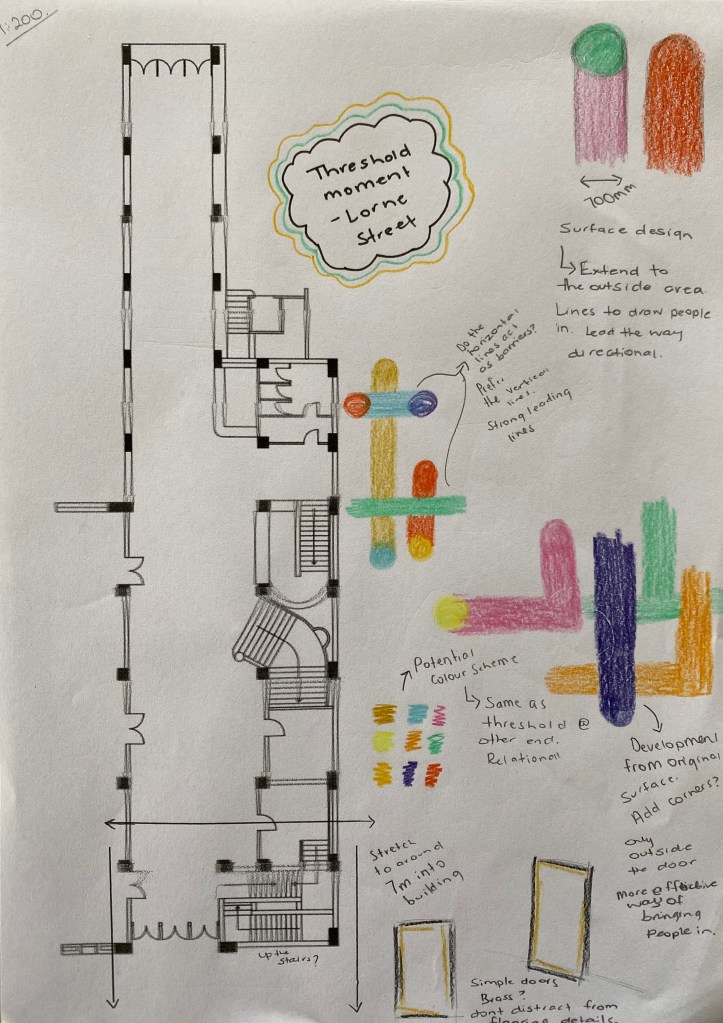 1:200.
Threshold
moment
- Lorne
Street
700mm
Surface design
Extend to
the outside area
Lines to draw people
in. Lead the way
directional.
Do the
horizontal
lines act
as barriers?
Prefer
the vertical
lines.
Strong leading
lines
Potential
Colour Scheme
Same as
threshold @
other end.
Relational
Development
from Original
Surface.
Add corners?
only
outside
the door
More effective
way of
bringing
People in.
Stretch
to around
7m into
building
up the
stairs?
Simple doors
Brass?
dont distract from
flooring details.